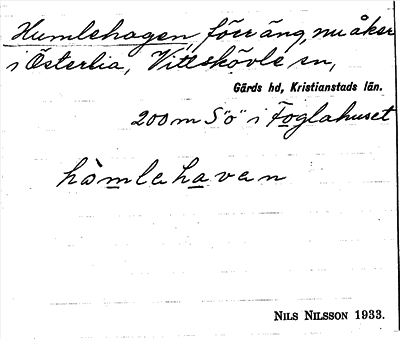 Humlehagen, förr äng, nu åker
i Österlia, Vittskövle sn,
Gärds hd, Kristianstads län.
200 m S"ö" i Foglahuset
hòmlehavan
NILS NILSSON 1933.